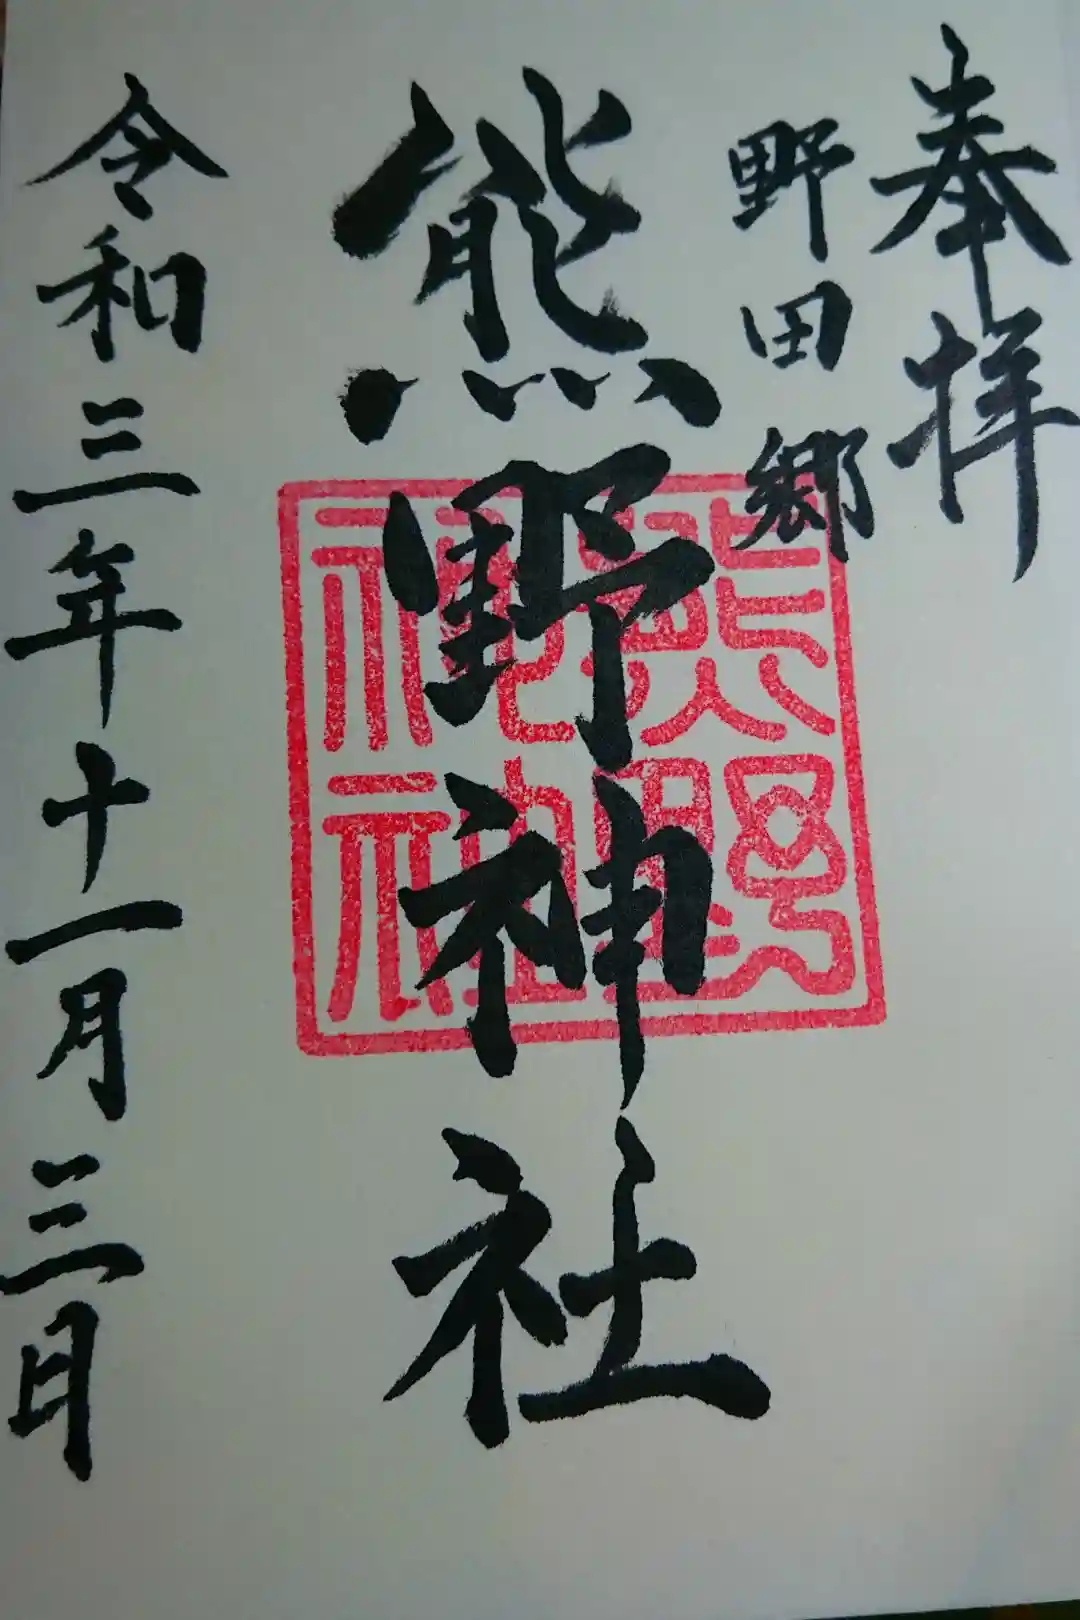 奉拝
野田郷
熊野神社
熊野
神社
令和三年十一月三日